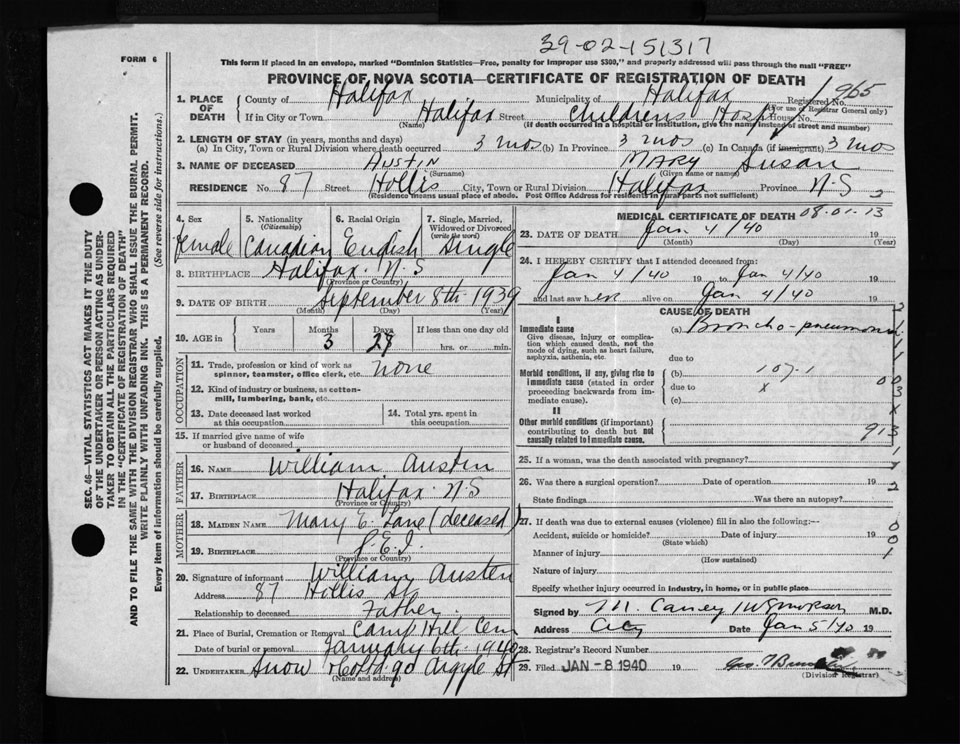 39-02-151317
FORM 6
This form if placed in an envelope, marked "Dominion Statistics—Free, penalty for improper use $300," and properly addressed will pass through the mail "FREE"
PROVINCE OF NOVA SCOTIA—CERTIFICATE OF REGISTRATION OF DEATH
1. PLACE OF DEATH { County of Halifax Municipality of Halifax Registered No. 965
(For use of Registrar General only)
If in City or Town Halifax Street Childrens Hosp House No.
(Name) (If death occurred in a hospital or institution, give the name instead of street and number)
2. LENGTH OF STAY (in years, months and days)
(a) In City, Town or Rural Division where death occurred 3 mos (b) In Province 3 mos (c) In Canada (if immigrant) 3 mos
3. NAME OF DECEASED AUSTIN MARY Susan
(Surname) (Given name or names)
RESIDENCE No. 87 Street Hollis City, Town or Rural Division Halifax Province N-S
(Residence means usual place of abode. Post Office Address for residents in rural parts not sufficient)
4. Sex 5. Nationality (Citizenship) 6. Racial Origin 7. Single, Married, Widowed or Divorced (write the word)
female Canadian English Single
8. BIRTHPLACE Halifax. N.S
(Province or Country)
9. DATE OF BIRTH September 8th 1939
(Month) (Day) (Year)
10. AGE in { Years Months Days If less than one day old
3 28 hrs. or min.
OCCUPATION
11. Trade, profession or kind of work as spinner, teamster, office clerk, etc. none
12. Kind of industry or business, as cotton-mill, lumbering, bank, etc.
13. Date deceased last worked at this occupation
14. Total yrs. spent in this occupation
15. If married give name of wife or husband of deceased
FATHER
16. NAME William Austen
17. BIRTHPLACE Halifax. N.S
(Province or Country)
MOTHER
18. MAIDEN NAME Mary E. Lane (deceased)
19. BIRTHPLACE P.E.I.
(Province or Country)
20. Signature of informant William Austen
Address 87 Hollis St
Relationship to deceased Father.
21. Place of Burial, Cremation or Removal Camp Hill Cem
Date of burial or removal January 6th 1940
22. UNDERTAKER Snow & Co Ltd 90 Argyle St
(Name and address)
MEDICAL CERTIFICATE OF DEATH 08.01.13
23. DATE OF DEATH Jan 4/40
(Month) (Day) (Year)
24. I HEREBY CERTIFY that I attended deceased from:
Jan 4/40 19 to Jan 4/40 19
and last saw her alive on Jan 4/40 19
CAUSE OF DEATH
I
Immediate cause (a) Broncho-pneumonia
Give disease, injury or complication which caused death, not the mode of dying, such as heart failure, asphyxia, asthenia, etc.
due to
Morbid conditions, if any, giving rise to immediate cause (stated in order proceeding backwards from immediate cause).
(b) 107-1
due to x
(c)
II
Other morbid conditions (if important) contributing to death but not causally related to immediate cause.
913
25. If a woman, was the death associated with pregnancy?
26. Was there a surgical operation? Date of operation 19
State findings Was there an autopsy?
27. If death was due to external causes (violence) fill in also the following:—
Accident, suicide or homicide? Date of injury 19
(State which)
Manner of injury
(How sustained)
Nature of injury
Specify whether injury occurred in industry, in home, or in public place
Signed by M.D.
Address City Date Jan 5/40 19
28. Registrar's Record Number
29. Filed JAN - 8 1940 19 Geo.
(Division Registrar)
SEC. 46—VITAL STATISTICS ACT MAKES IT THE DUTY
OF THE UNDERTAKER OR PERSON ACTING AS UNDER-
TAKER TO OBTAIN ALL THE PARTICULARS REQUIRED
IN THE "CERTIFICATE OF REGISTRATION OF DEATH"
AND TO FILE THE SAME WITH THE DIVISION REGISTRAR WHO SHALL ISSUE THE BURIAL PERMIT.
WRITE PLAINLY WITH UNFADING INK. THIS IS A PERMANENT RECORD.
Every item of information should be carefully supplied. (See reverse side for instructions.)